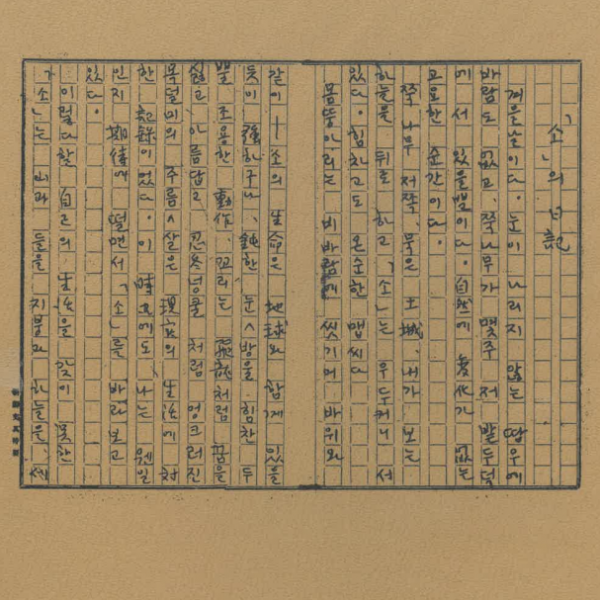 「소」의 日記
겨울날이다. 눈이 나리지 않는 땅우에
바람도 없고, 쭉나무가 몇주 저 발두덕
에 서 있을뿐이다. 自然에 変化가 없는
고요한 순간이다.
쭉나무 저쪽 묵은 土城, 내가 보는
하늘을 뒤로 하고 「소」는 우두커니 서
있다. 힘차고도 온순한 맵씨다
몸뚱아리는 비바람에 씻기며 바위와
같이 — 소의 生命은 地球와 함께 있을
듯이 强하구나, 鈍한 눈방울 힘찬 두
뿔 조용한 動作, 꼬리는 처럼 꿈을
싫고 아름답고 忍冬넝쿨 처럼 엉크러진
목덜미의 주름살은 現实의 生活에 対
한 記錄이었다. 이 에도 나는 웬일
인지 期待에 떨면서 「소」를 바라보고
있다.
이렇다할 自己의 生活을 갖이 못한
「소」는 山과 들을 지붕과 하늘을,